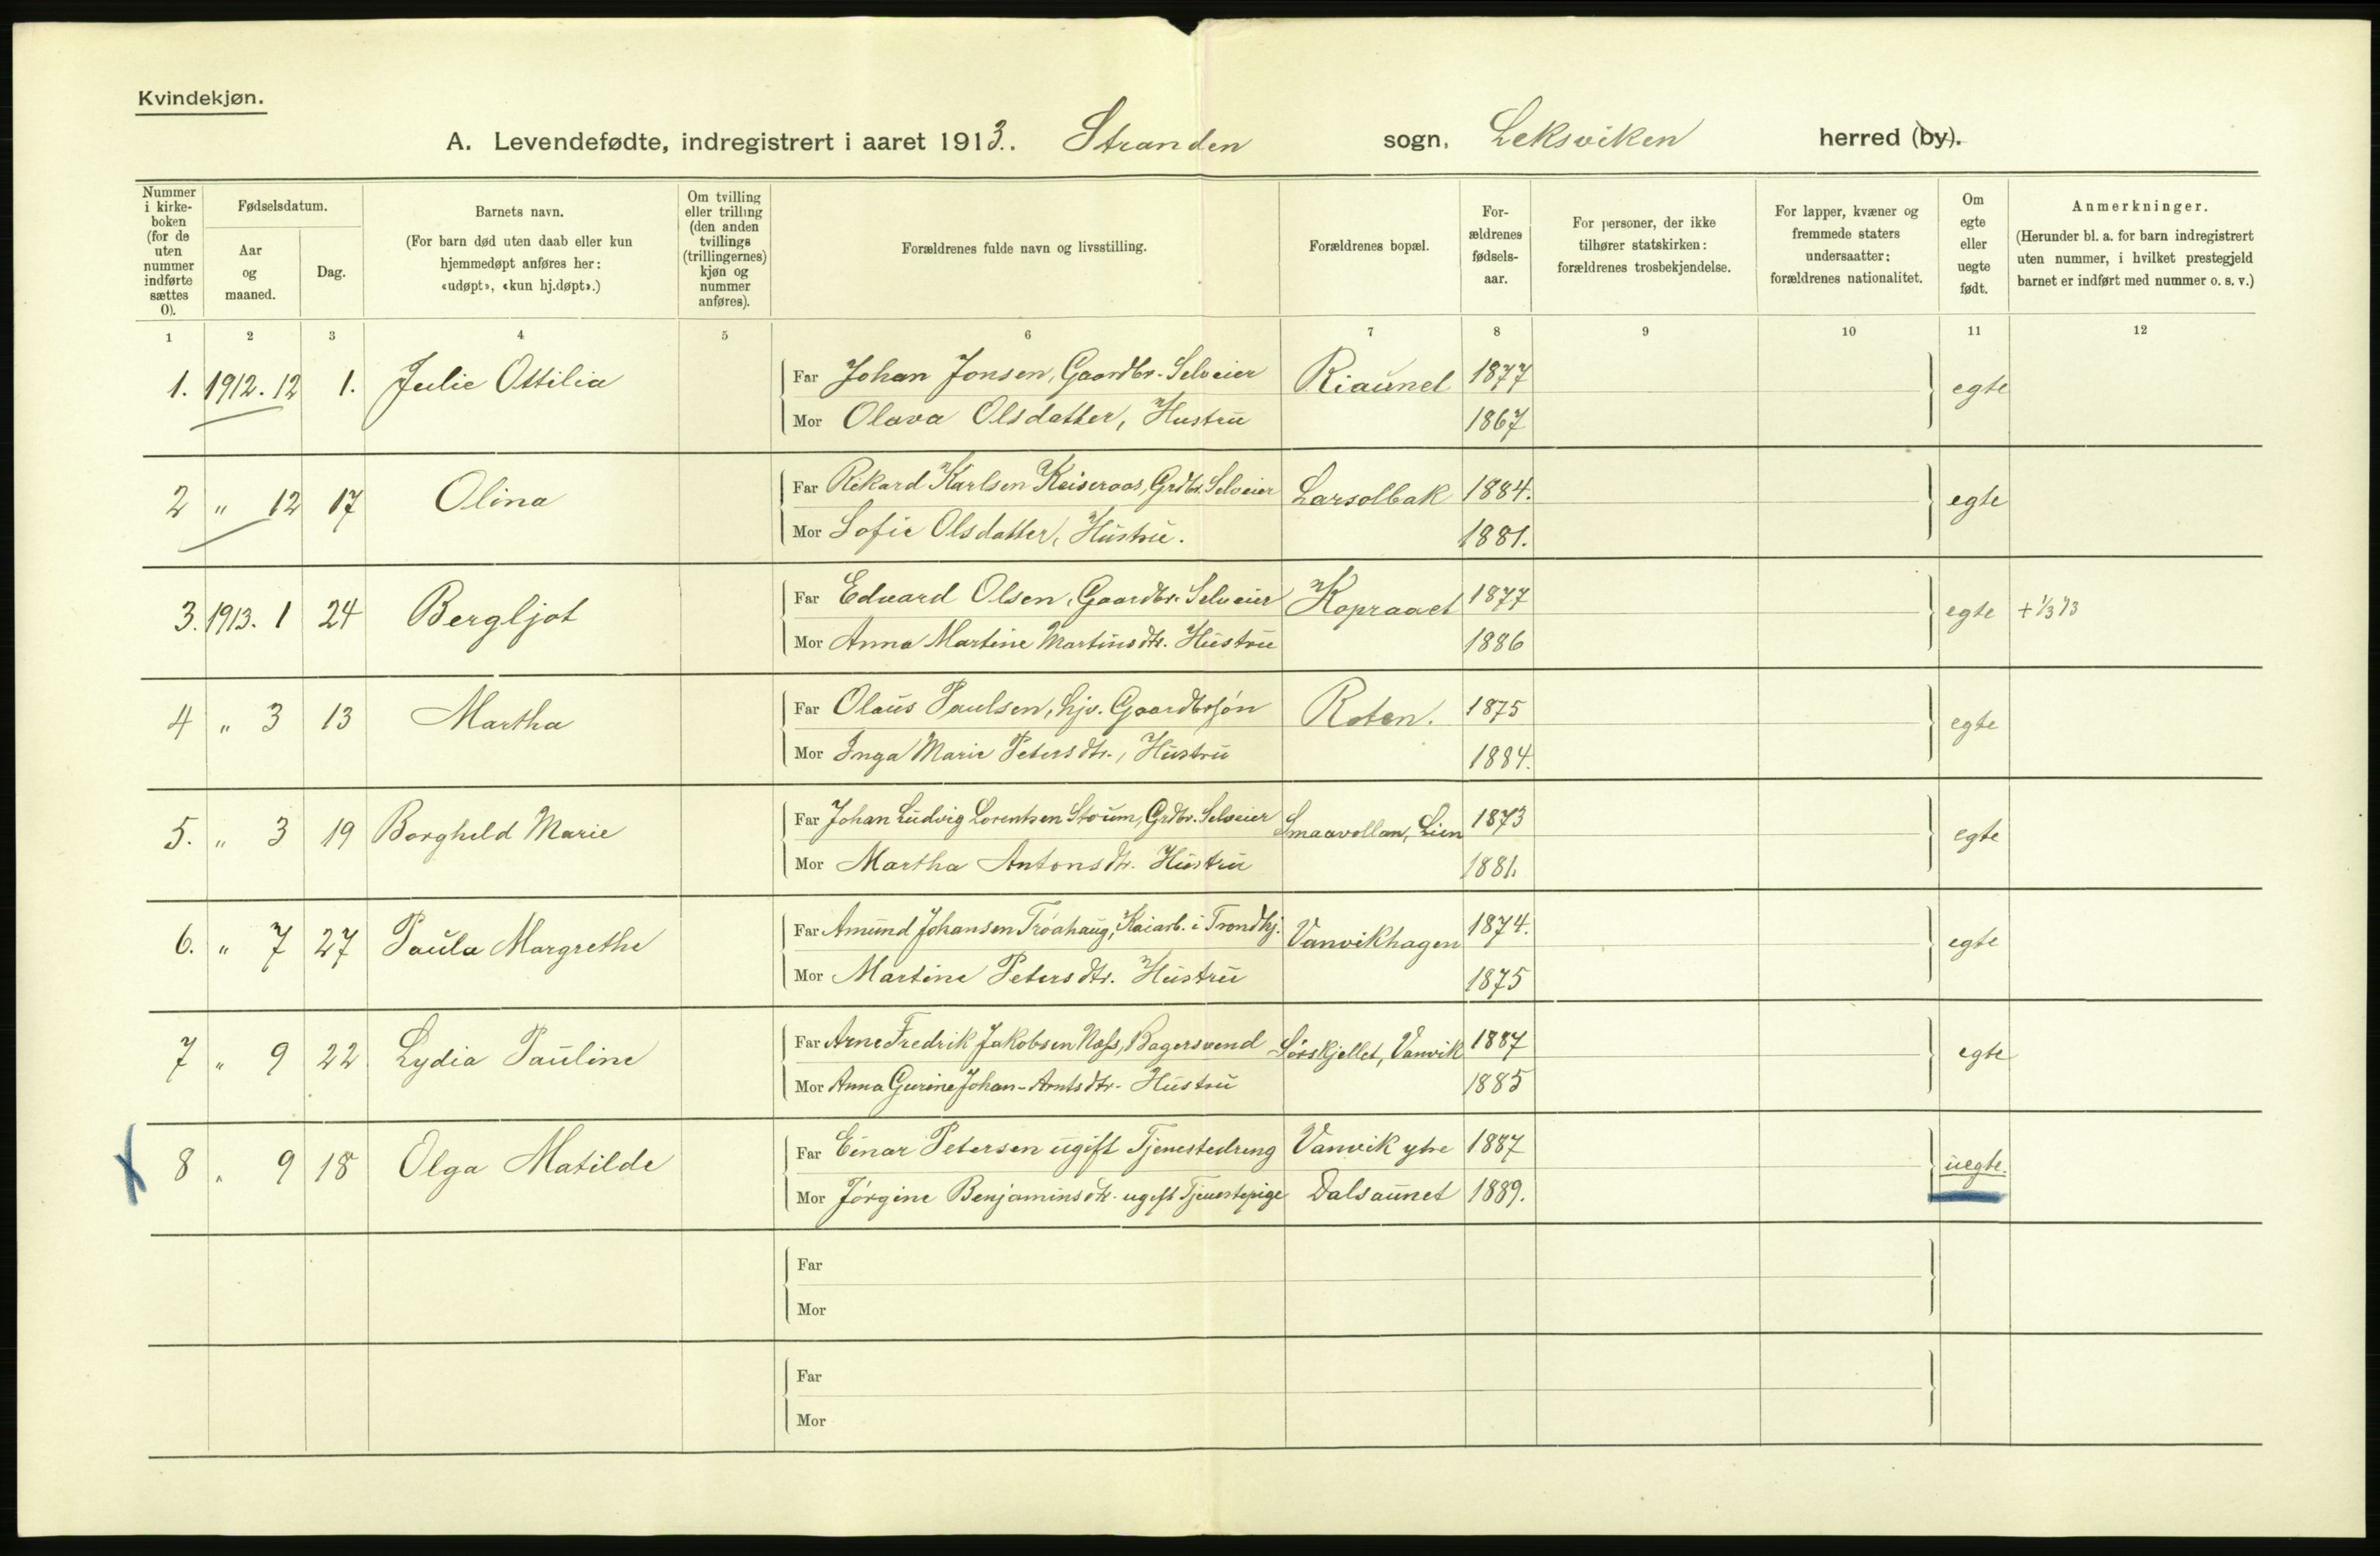 Kvindekjøn.
A. Levendefødte, indregistrert i aaret 1913. Stranden sogn, Leksviken herred (by).
Nummer i kirkeboken (for de uten nummer indførte sættes 0).
Fødselsdatum.
Aar og maaned.
Dag.
Barnets navn.
(For barn død uten daab eller kun hjemmedøpt anføres her: «udøpt», «kun hj.døpt».)
Om tvilling eller trilling (den anden tvillings (trillingernes) kjøn og nummer anføres).
Forældrenes fulde navn og livsstilling.
Forældrenes bopæl.
Forældrenes fødselsaar.
For personer, der ikke tilhører statskirken: forældrenes trosbekjendelse.
For lapper, kvæner og fremmede staters undersaatter: forældrenes nationalitet.
Om egte eller uegte født.
Anmerkninger.
(Herunder bl. a. for barn indregistrert uten nummer, i hvilket prestegjeld barnet er indført med nummer o. s. v.)
1 2 3 4 5 6 7 8 9 10 11 12
1. 1912. 12 1. Julie Ottilia Far Johan Jonsen, Gaardbr. Selveier Riaunet 1877 egte
Mor Olava Olsdatter, Hustru 1867
2 " 12 17 Olina Far Rikard Karlsen Keiseraas, Grdbr. Selveier Larsolbak 1884. egte
Mor Sofie Olsdatter, Hustru. 1881.
3. 1913. 1 24 Bergljot Far Edvard Olsen, Gaardbr. Selveier Kopraaet 1877 egte + 1/3 13
Mor Anna Martine Martinsdtr. Hustru 1886
4 " 3 13 Martha Far Olaus Paulsen, hjv. Gaardbrsøn Roten. 1875 egte
Mor Inga Marie Petersdtr., Hustru 1884.
5. " 3 19 Borghild Marie Far Johan Ludvig Lorentsen Stoum, Grdbr. Selveier Smaavollan, Lien 1873 egte
Mor Martha Antonsdtr. Hustru 1881.
6. " 7 27 Paula Margrethe Far Amund Johansen Trøahaug, Kaiarb. i Trondhj. Vanvikhagen 1874. egte
Mor Martine Petersdtr. Hustru 1875
7 " 9 22 Lydia Pauline Far Arne Fredrik Jakobsen Næss, Bagersvend Sørskjellet, Vanvik 1887 egte
Mor Anna Gurine Johan-Arntsdtr. Hustru 1885
8 " 9 18 Olga Matilde Far Einar Petersen ugift Tjenestedreng Vanvik ytre 1887 uegte.
Mor Jørgine Benjaminsdtr. ugift Tjenestepige Dalsaunet 1889.
Far
Mor
Far
Mor